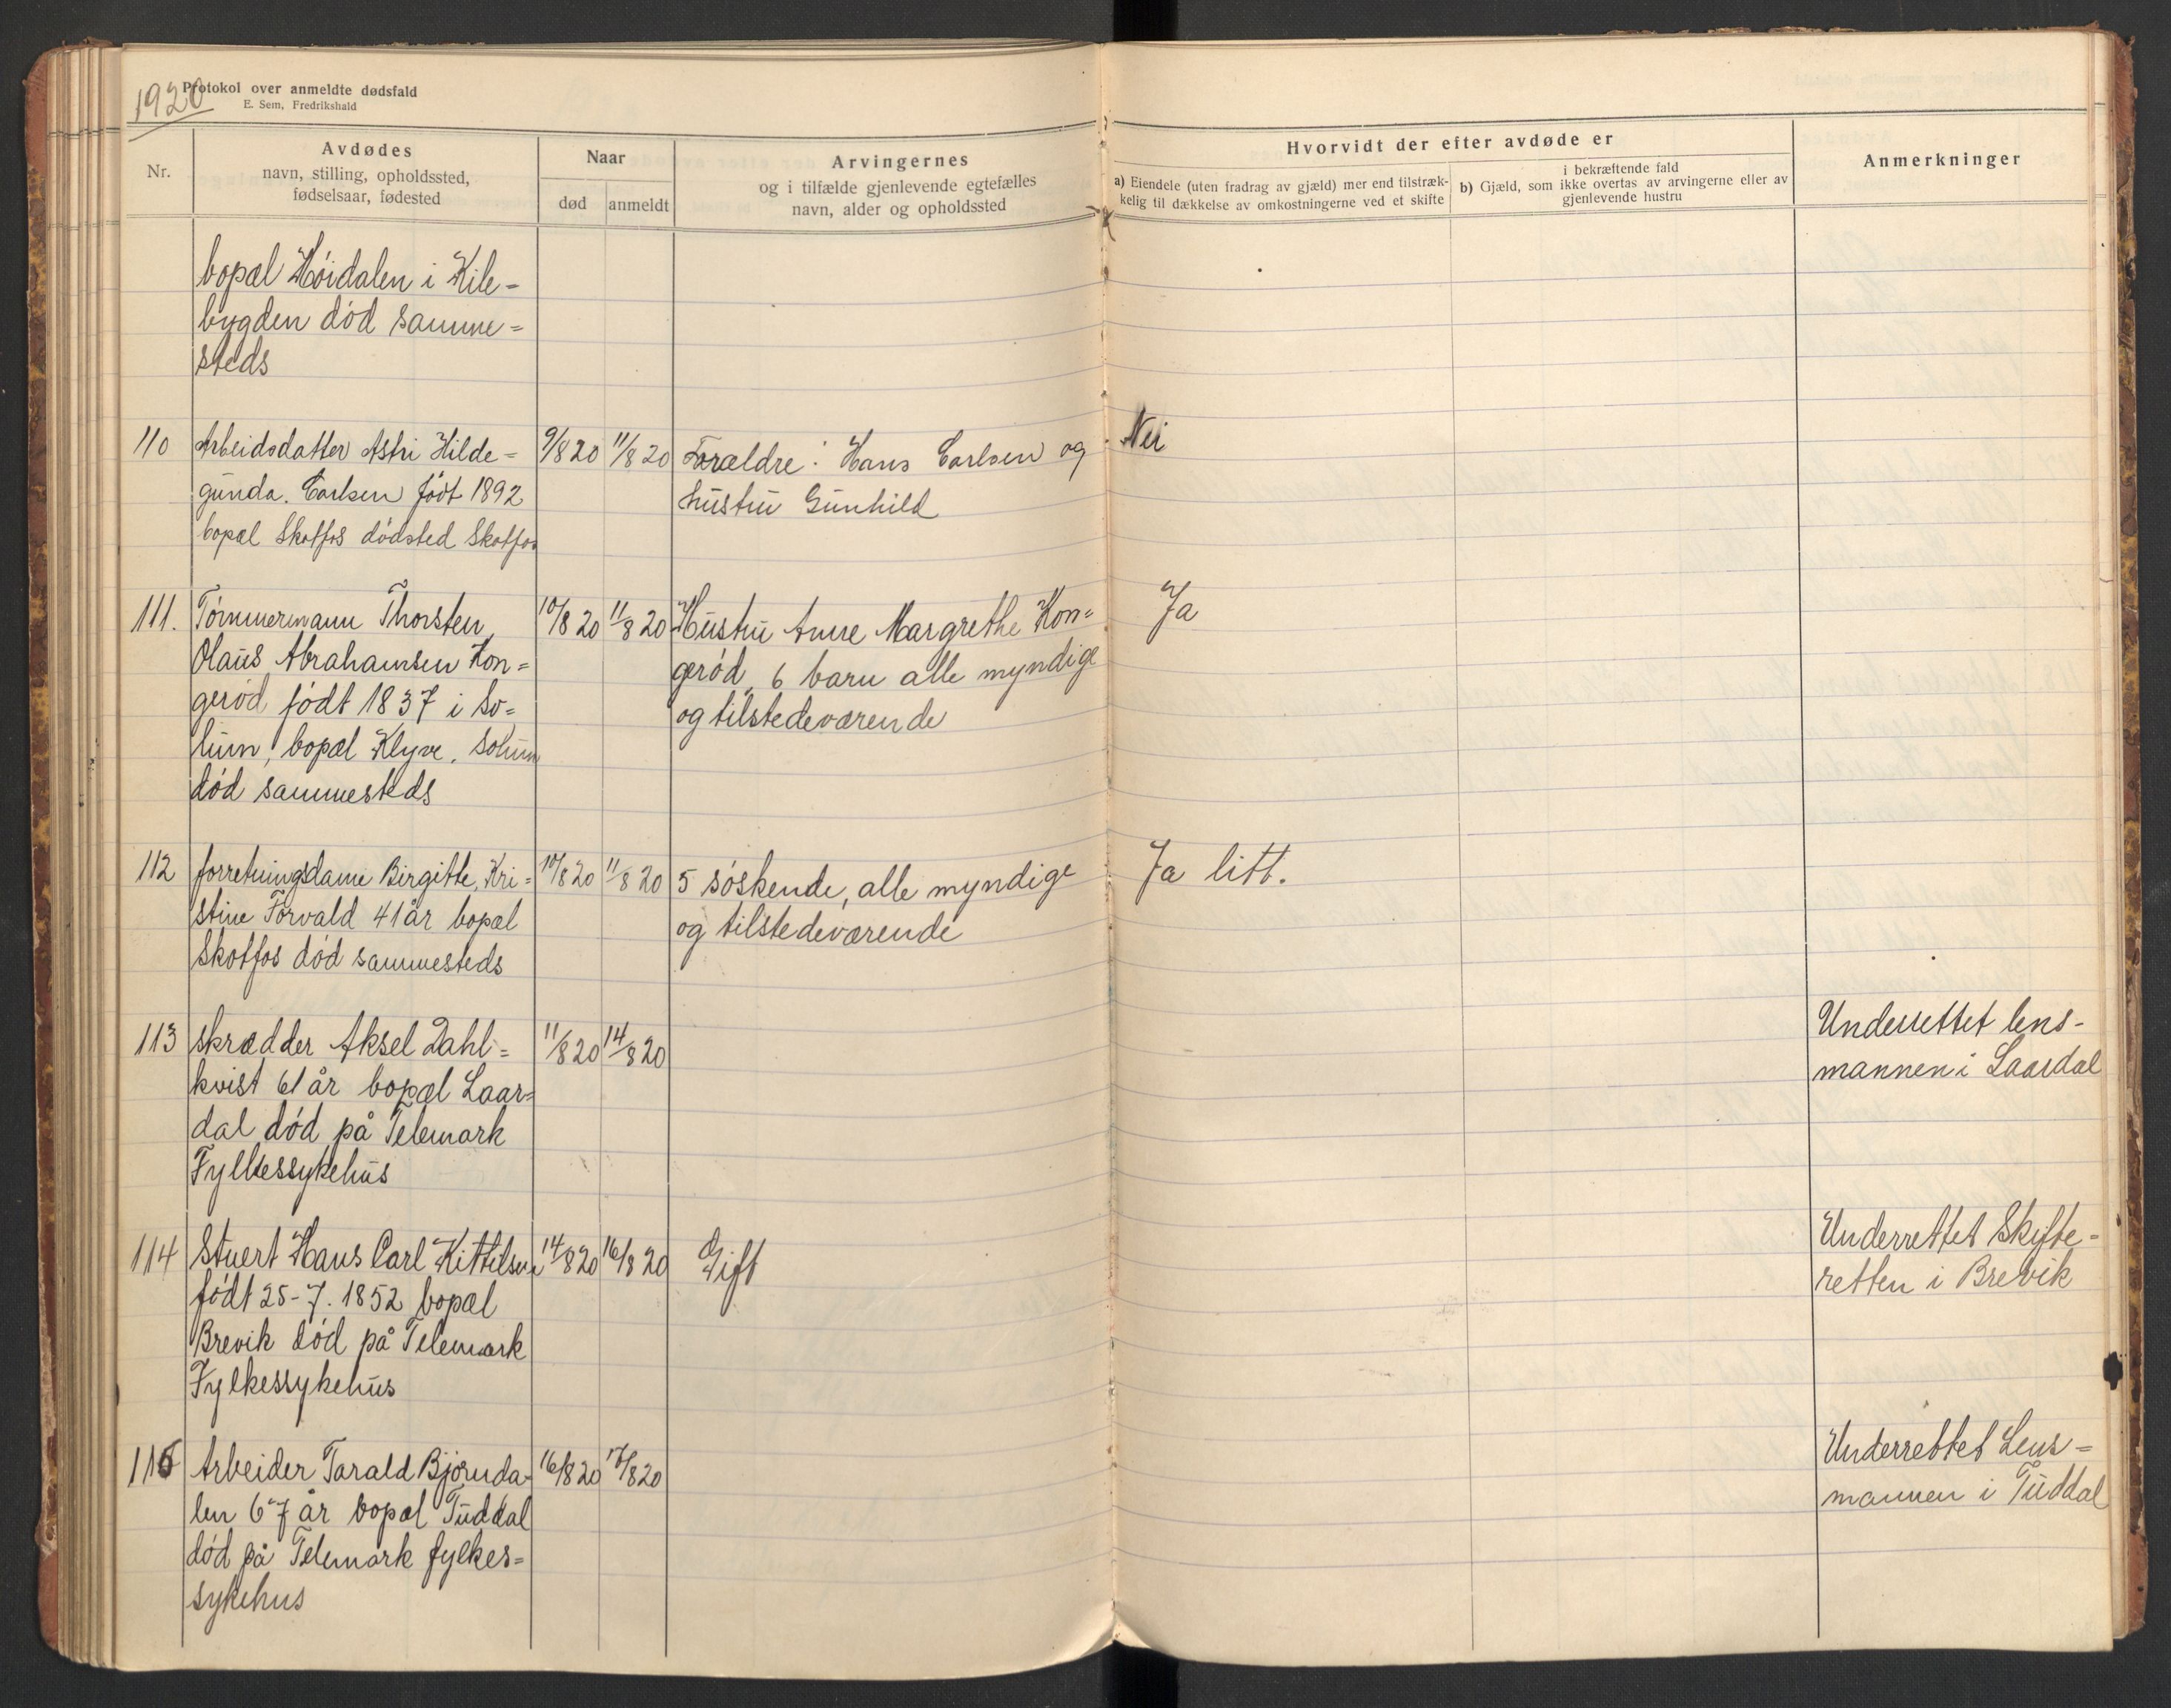 1920
Protokol over anmeldte dødsfald
E. Sem, Fredrikshald
Nr.
Avdødes
navn, stilling, opholdssted,
fødselsaar, fødested
Naar
død
anmeldt
Arvingernes
og i tilfælde gjenlevende egtefælles
navn, alder og opholdssted
Hvorvidt der efter avdøde er
a) Eiendele (uten fradrag av gjæld) mer end tilstræk-
kelig til dækkelse av omkostningerne ved et skifte
i bekræftende fald
b) Gjæld, som ikke overtas av arvingerne eller av
gjenlevende hustru
Anmerkninger
bopæl Höidalen i Kile=
bygden död samme=
steds
110 Arbeidsdatter Astri Hilde= 9/8 20 11/8 20 Forældre: Hans Carlsen og Nei
gunda. Carlsen födt 1892 hustru Gunhild
bopæl Skotfos dödsted Skotfos
111. Tömmermann Thorsten 10/8 20 11/8 20 Hustru Anne Margrethe Kon= Ja
Olaus Abrahamsen Kon= geröd, 6 barn alle myndige
geröd födt 1837 i So= og tilstedeværende
lum, bopæl Klyve, Solum
död sammesteds
112 forretningsdame Birgitte, Kri= 10/8 20 11/8 20 5 söskende, alle myndige Ja litt.
stine Torvald 41 år bopæl og tilstedeværende
Skotfos död sammesteds
113 skrædder Aksel Dahl= 11/8 20 14/8 20 Underrettet lens-
kvist 61 år bopæl Laar= mannen i Laardal
dal död på Telemark
Fylkessykehus
114 Stuert Hans Carl Kittilsen 14/8 20 16/8 20 Gift Underrettet Skifte=
födt 25-7. 1852 bopæl retten i Brevik
Brevik död på Telemark
Fylkessykehus
115 Arbeider Tarald Björnda- 16/8 20 17/8 20 Underrettet Lens=
len 67 år bopæl Tuddal mannen i Tuddal
död på Telemark fylkes=
sykehus